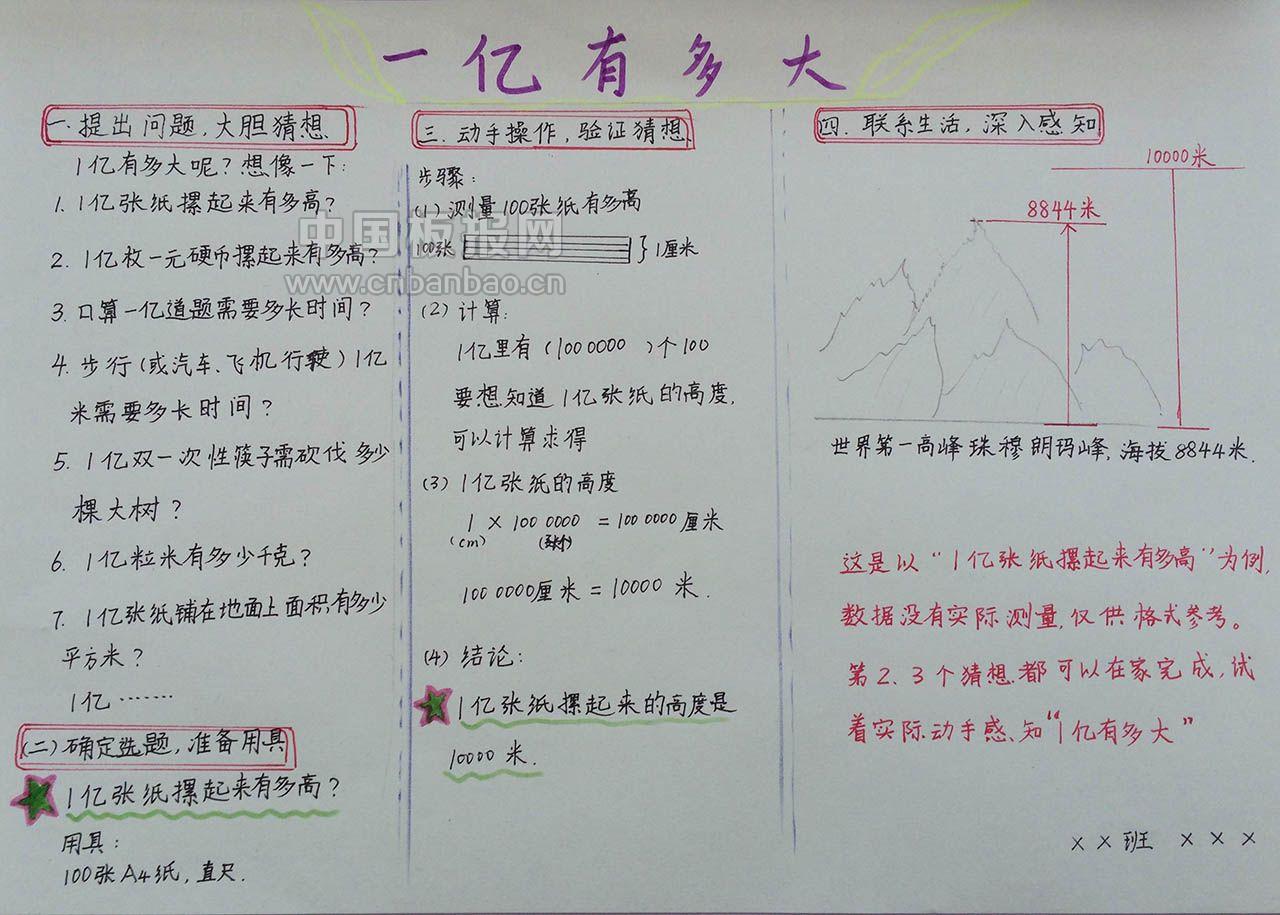 一亿有多大
一.提出问题,大胆猜想
1亿有多大呢?想像一下:
1.1亿张纸摞起来有多高?
2.1亿枚一元硬币摞起来有多高?
3.口算一亿道题需要多长时间?
4.步行(或汽车、飞机行驶)1亿
米需要多长时间?
5.1亿双一次性筷子需砍伐多少
棵大树?
6.1亿粒米有多少千克?
7.1亿张纸铺在地面上面积有多少
平方米?
1亿……
(二)确定选题,准备用具
1亿张纸摞起来有多高?
用具:
100张A4纸,直尺.
三.动手操作,验证猜想
步骤:
(1)测量100张纸有多高
100张 } 1厘米
(2)计算:
1亿里有(1000000)个100
要想知道1亿张纸的高度,
可以计算求得
(3)1亿张纸的高度
1 × 1000000 = 1000000厘米
(cm)
1000000厘米 = 10000米.
(4)结论:
1亿张纸摞起来的高度是
10000米.
四.联系生活,深入感知
10000米
8844米
世界第一高峰珠穆朗玛峰,海拔8844米.
这是以“1亿张纸摞起来有多高”为例,
数据没有实际测量,仅供格式参考。
第2、3个猜想都可以在家完成,试
着实际动手感知“1亿有多大”
××班 ×××
中国板报网
www.cnbanbao.cn